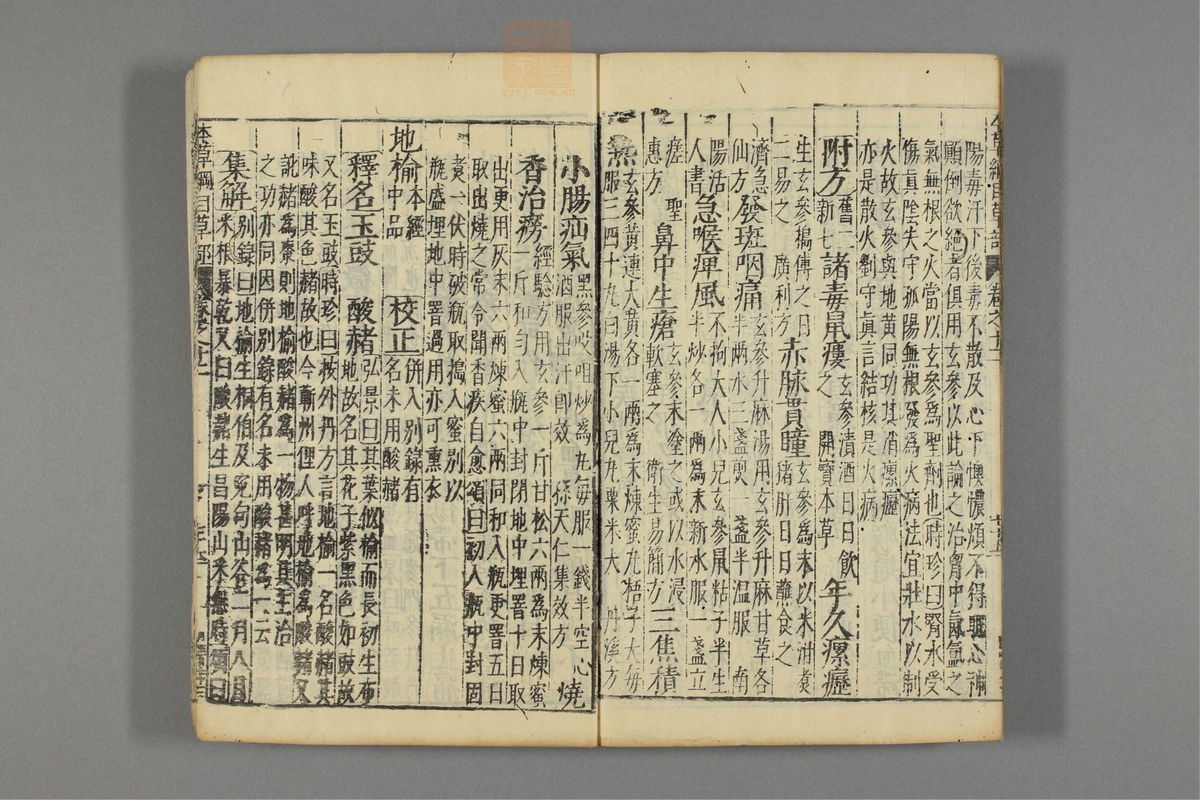 陽毒汗下後毒不散及心下懊憹煩不得眠心神
顛倒欲絕者俱用玄參以此論之治胷中氤氳之
氣無根之火當以玄參爲聖劑也時珍曰腎水受
傷眞陰失守孤陽無根發爲火病法宜壯水以制
火故玄參與地黃同功其消瘰癧
亦是散火劉守眞言結核是火病
附方舊二新七諸毒鼠瘻玄參漬酒日日飲之 開寶本草年久瘰癧
生玄參搗傅之日二易之 廣利方赤脉貫瞳玄參爲末以米泔煑猪肝日日蘸食之
濟急仙方發斑咽痛玄參升麻湯用玄參升麻甘草各半兩水三盞煎一盞半温服 南
陽活人書急喉痺風不拘大人小兒玄參鼠粘子半生半炒各一兩爲末新水服一盞立
瘥 聖惠方鼻中生瘡玄參末塗之或以水浸軟塞之 衛生易簡方三焦積
熱玄參黃連大黃各一兩爲末煉蜜丸梧子大每服三四十丸白湯下小兒丸粟米大 丹溪方
小腸疝氣黑參㕮咀炒爲丸每服一錢半空心酒服出汗卽效 孫天仁集效方燒
香治癆經驗方用玄參一斤甘松六兩爲末煉蜜一斤和勻入瓶中封閉地中埋窨十日取
出更用灰末六兩煉蜜六兩同和入瓶更窨五日
取出燒之常令聞香疾自愈頌曰初入瓶中封固
煑一伏時破瓶取搗入蜜別以
瓶盛埋地中窨過用亦可熏衣
地榆本經中品 校正併入別錄有名未用酸赭
釋名玉豉 酸赭弘景曰其葉似榆而長初生布地故名其花子紫黑色如豉故
又名玉豉時珍曰按外丹方言地榆一名酸赭其
味酸其色赭故也今蘄州俚人呼地榆爲酸赭又
訛赭爲棗則地榆酸赭爲一物甚明其主治
之功亦同因併別錄有名未用酸赭爲一云
集解別錄曰地榆生桐伯及冤句山谷二月八月采根暴乾又曰酸赭生昌陽山采無時頌曰